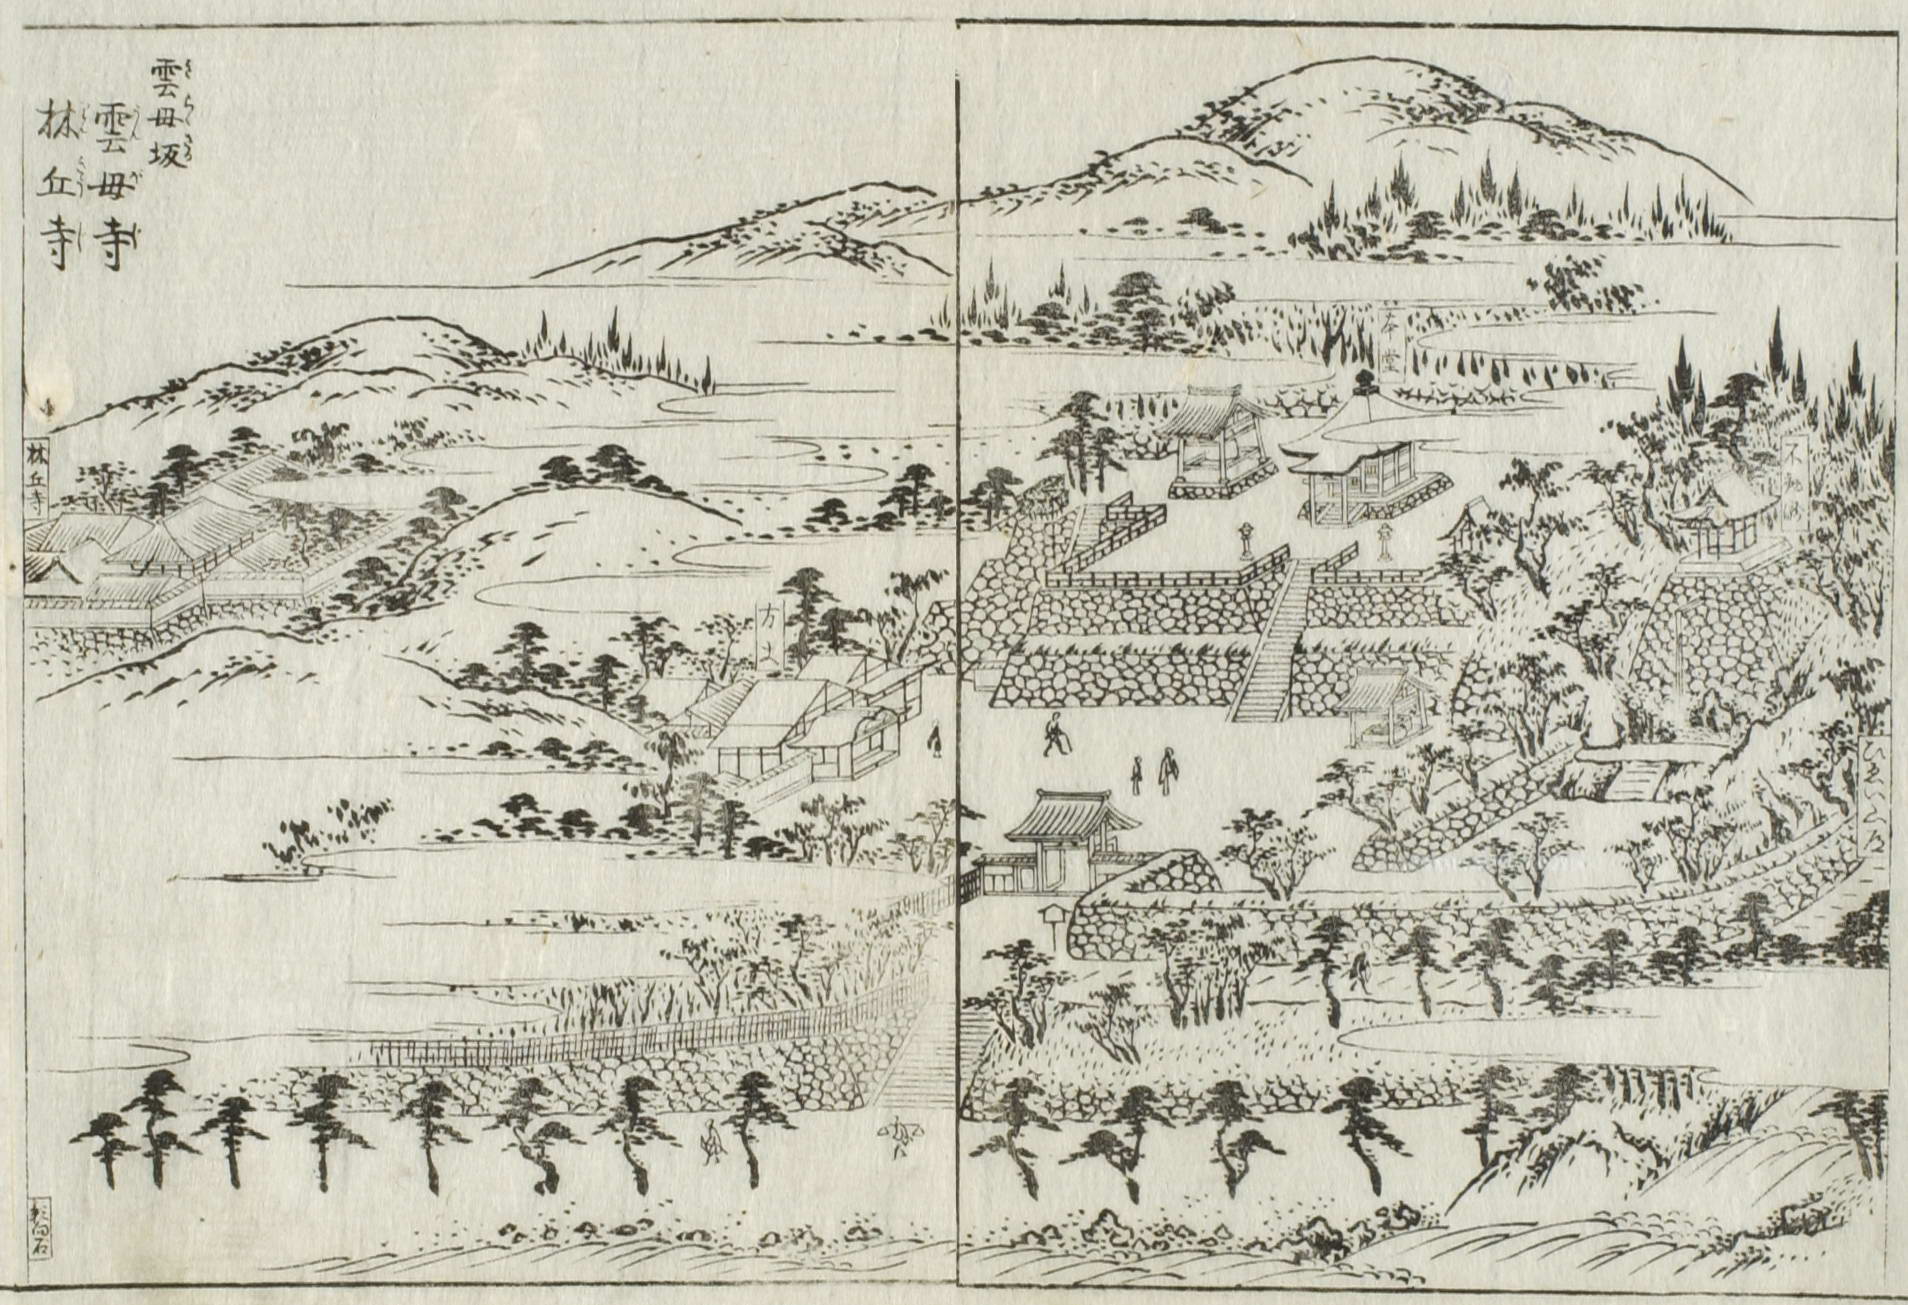 不動
ひゑい山道
本堂
方丈
雲母坂
雲母寺
林丘寺
林丘寺
影向石